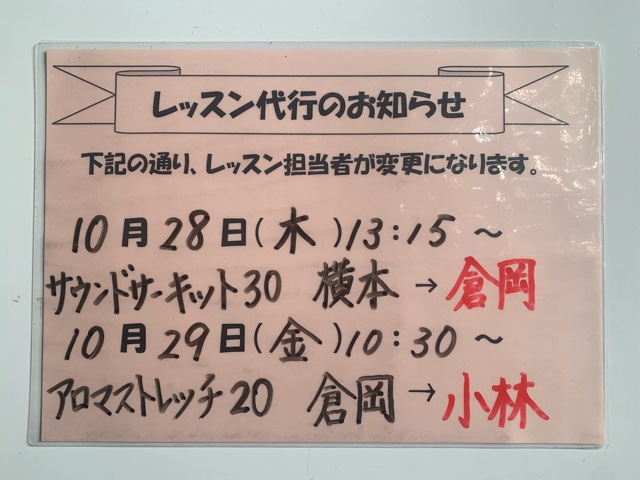 レッスン代行のお知らせ
下記の通り、レッスン担当者が変更になります。
10月28日(木)13:15 ～
サウンドサーキット30 横本 → 倉岡
10月29日(金)10:30～
アロマストレッチ20 倉岡 → 小林